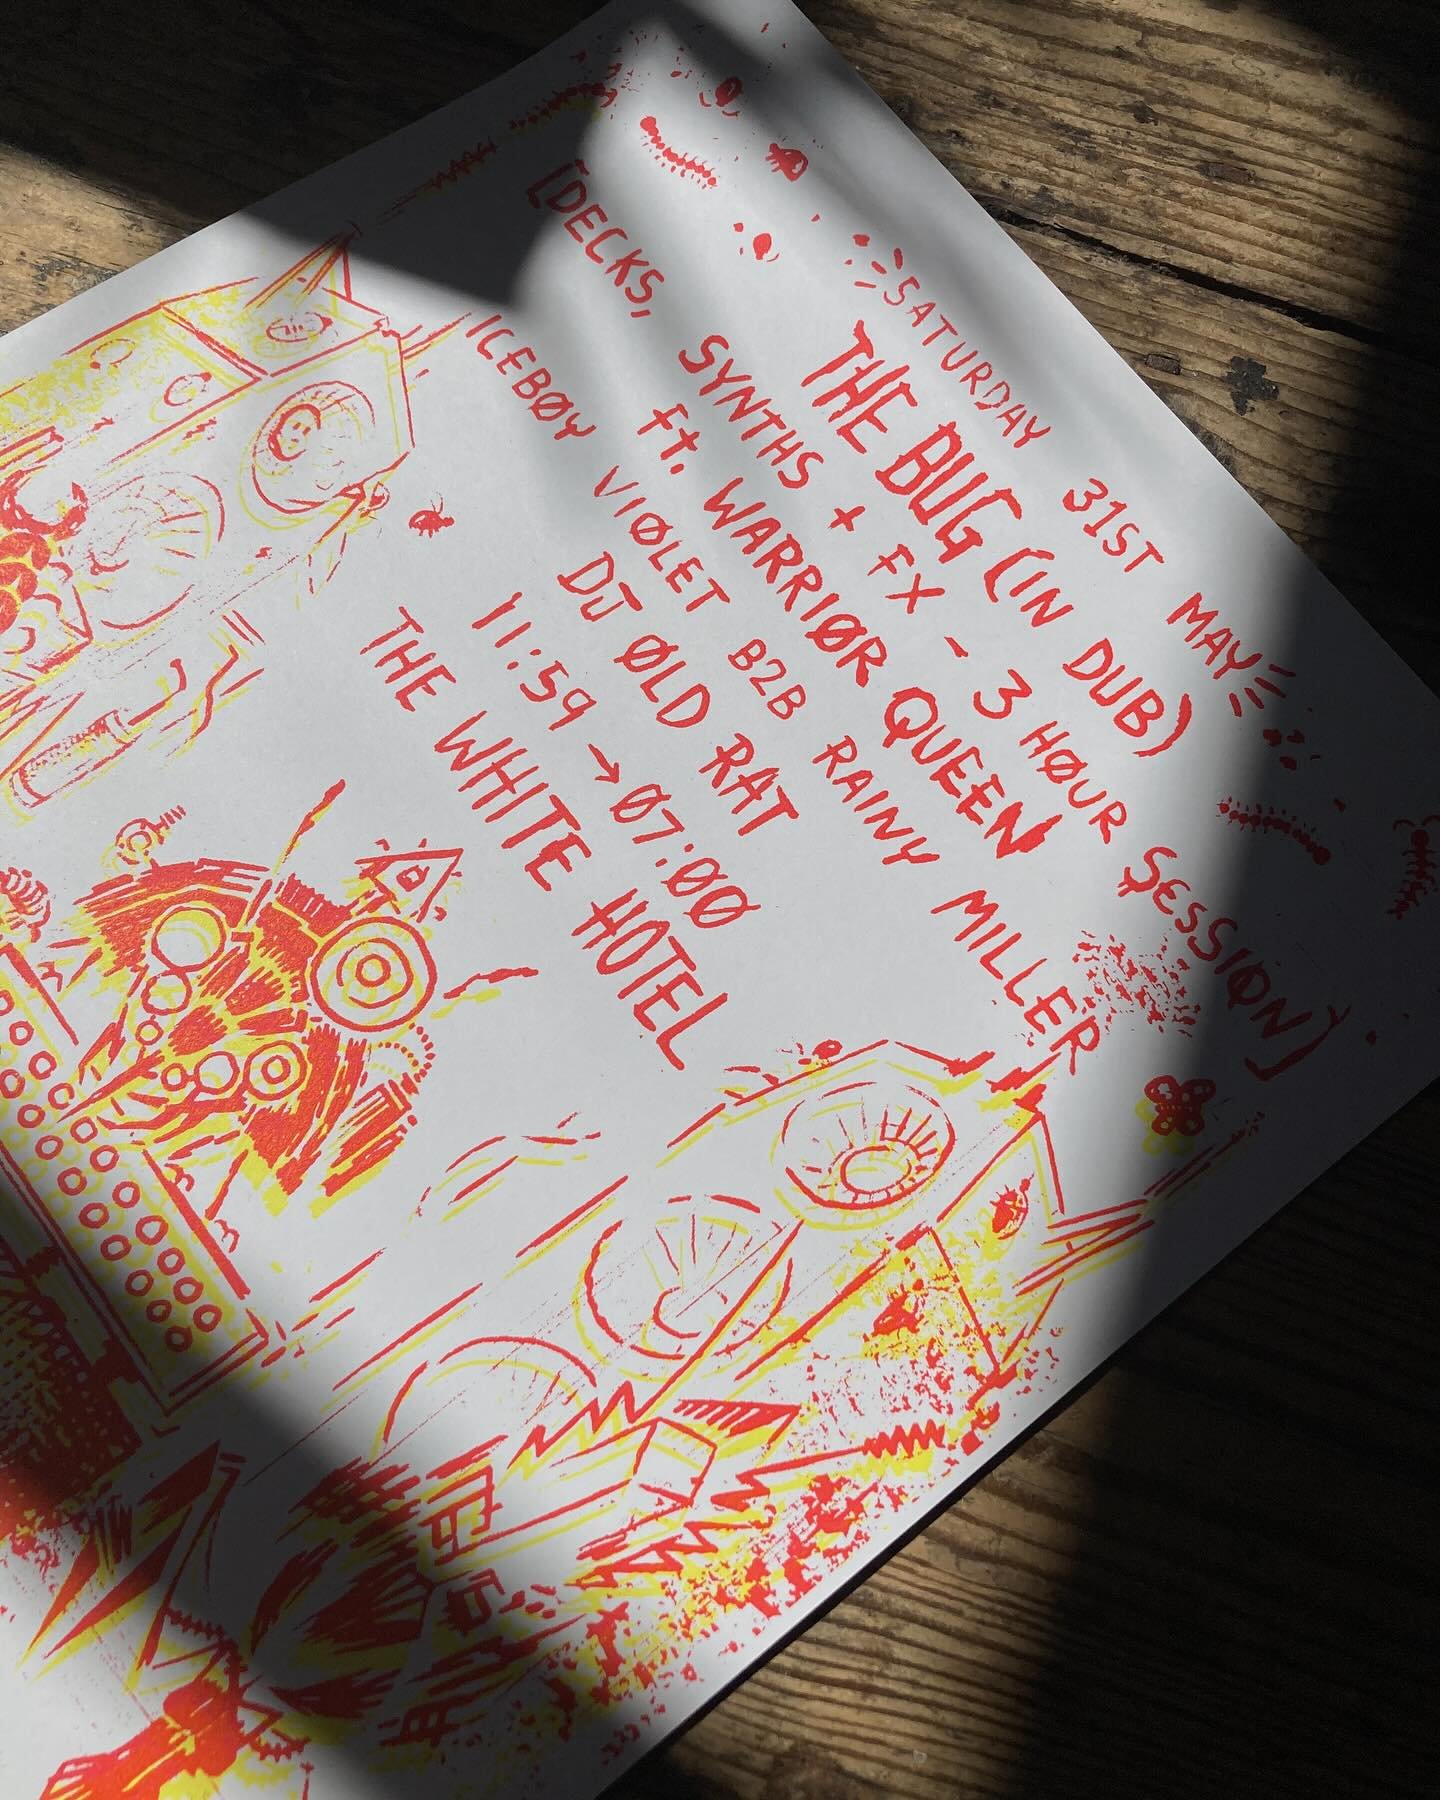 SATURDAY 31ST MAY
THE BUG (IN DUB)
[DECKS, SYNTHS + FX - 3 HØUR SESSIØN]
ft. WARRIØR QUEEN
ICEBØY VIØLET B2B RAINY MILLER
DJ ØLD RAT
11:59 → 07:00
THE WHITE HOTEL